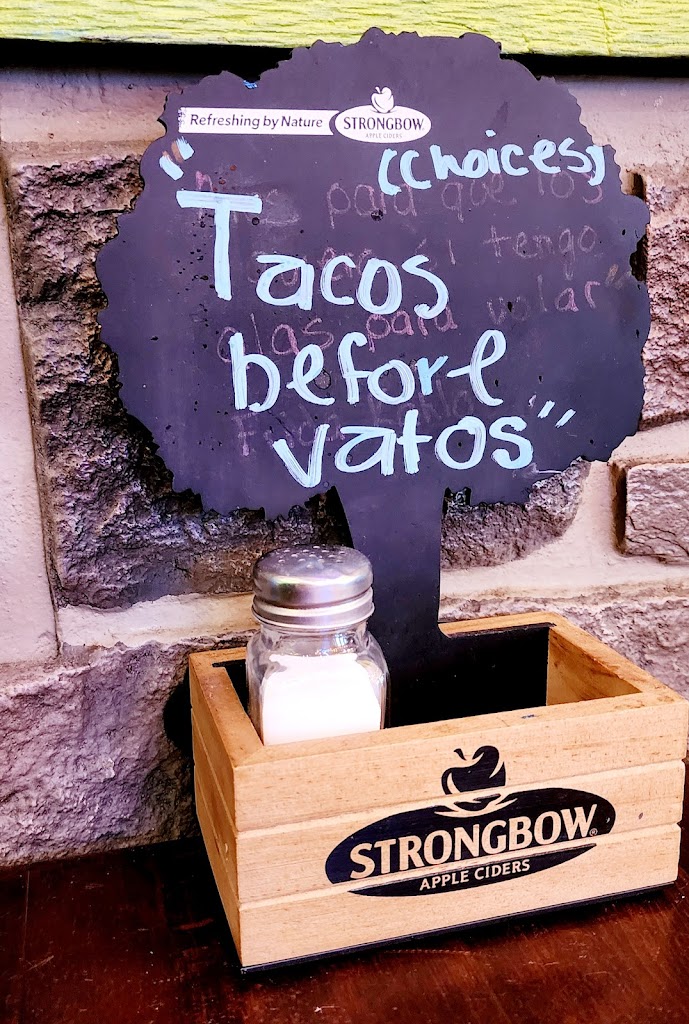 Refreshing by Nature
STRONGBOW
APPLE CIDERS
(Choices)
"Tacos
before
vatos"
para que los
tengo
alas para volar"
STRONGBOW®
APPLE CIDERS